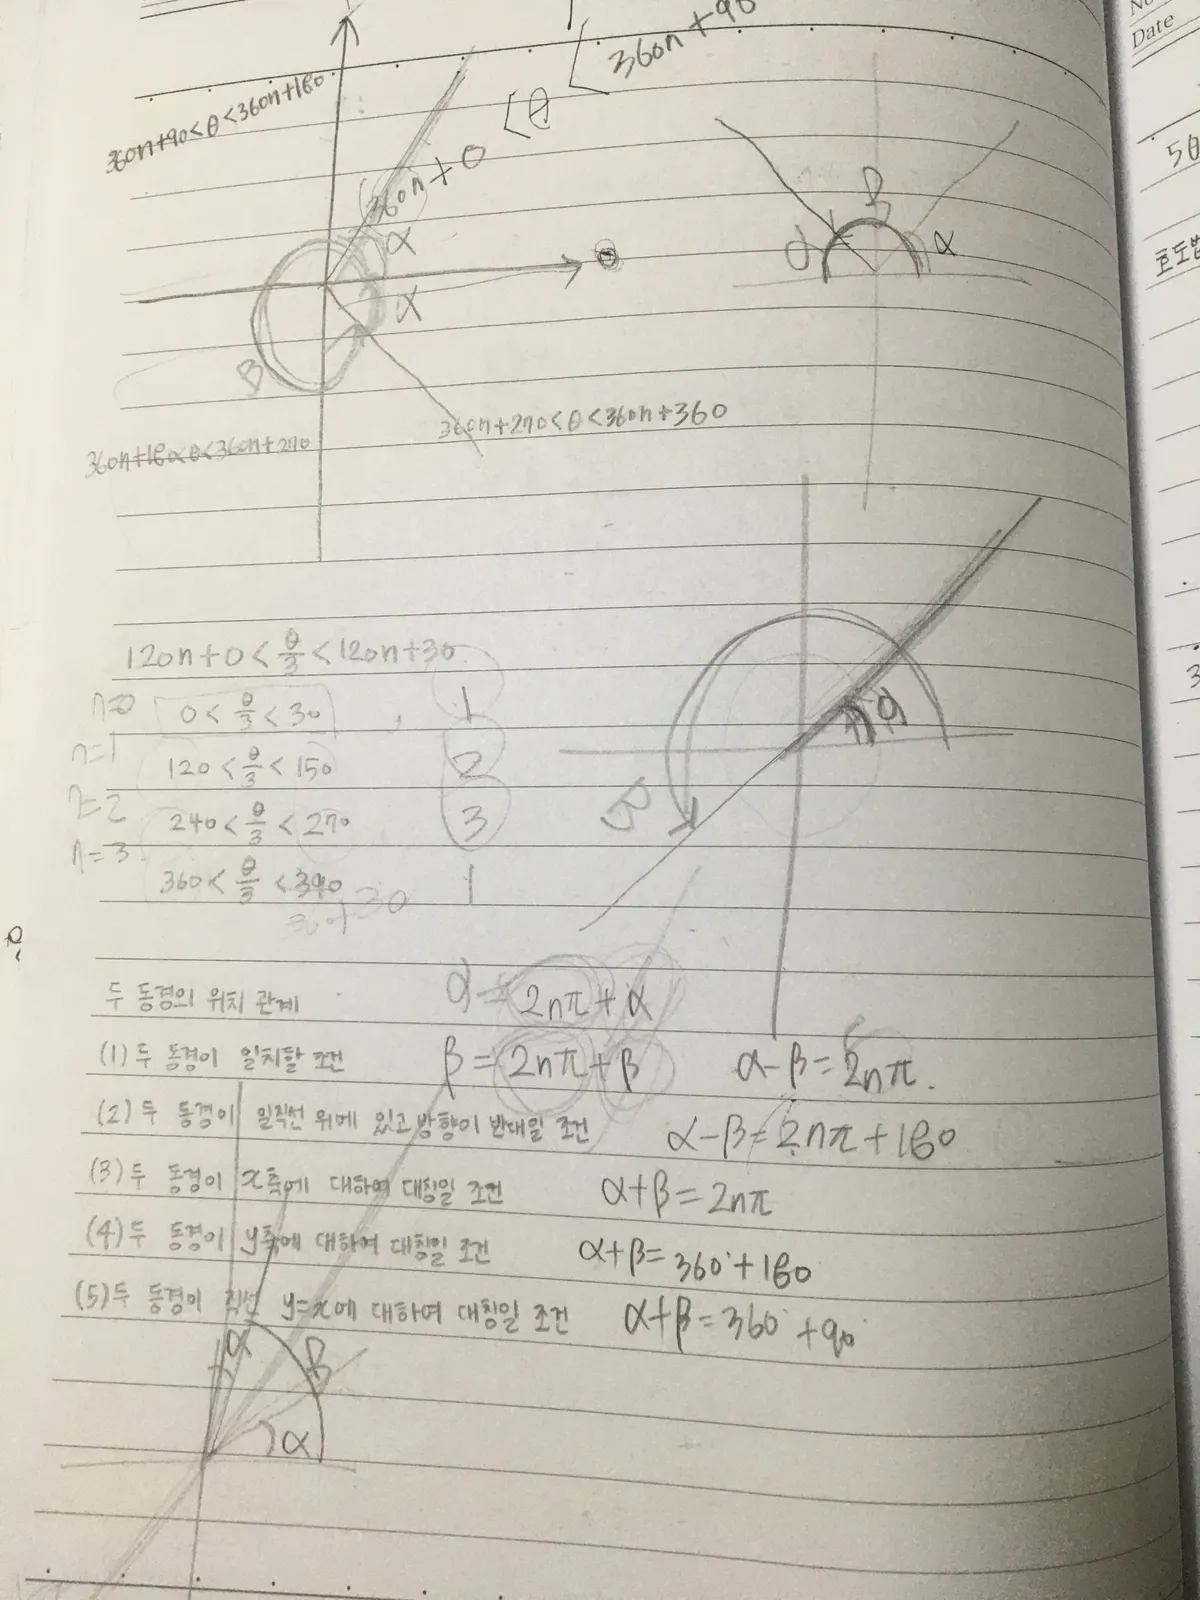 360n+90
No
Date
360n+90<θ<360n+180
<θ
360n+0
5θ
β
α
α
α
θ
호도법
α
β
360n+270<θ<360n+360
360n+180<θ<360n+270
120n+0<θ/3<120n+30
n=0 0<θ/3<30 1
n=1 120<θ/3<150 2
n=2 240<θ/3<270 3
n=3 360<θ/3<390 1
α
β
두 동경의 위치 관계 α=2nπ+α
(1) 두 동경이 일치할 조건 β=2nπ+β α-β=2nπ.
(2) 두 동경이 일직선 위에 있고 방향이 반대일 조건 α-β=2nπ+180
(3) 두 동경이 x축에 대하여 대칭일 조건 α+β=2nπ
(4) 두 동경이 y축에 대하여 대칭일 조건 α+β=360°+180
(5) 두 동경이 직선 y=x에 대하여 대칭일 조건 α+β=360°+90
α
β
α